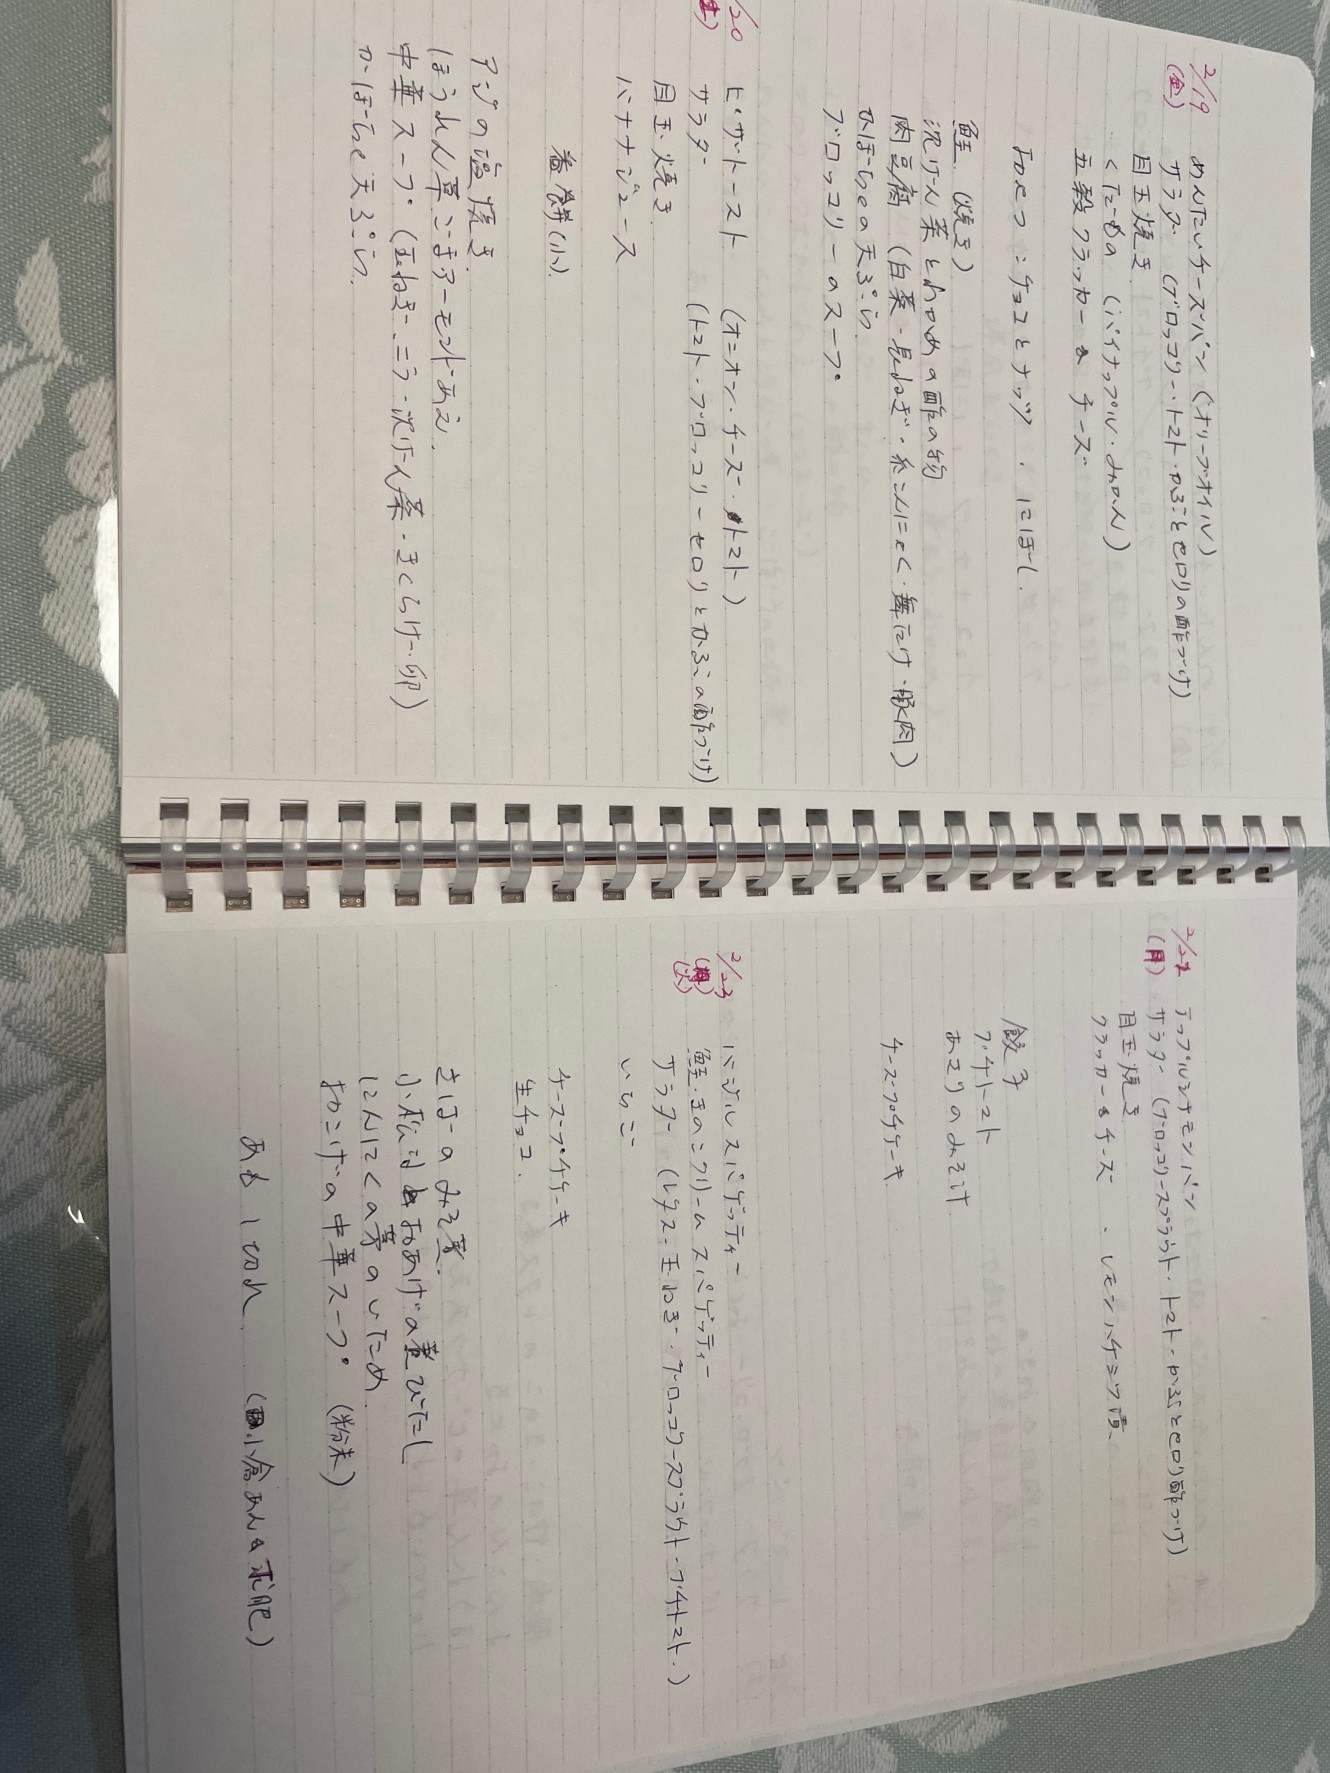 2/19
(金)
めんたいチーズパン (オリーブオイル)
サラダ (ブロッコリー・トマト・かぶとセロリの酢づけ)
目玉焼き
くだもの (パイナップル・みかん)
五穀クラッカー & チーズ
おやつ : チョコとナッツ ・ にぼし
鮭 (焼き)
沢けん菜とわかめの酢の物
肉豆腐 (白菜・長ねぎ・糸こんにゃく・舞たけ・豚肉)
かぼちゃの天ぷら
ブロッコリーのスープ
2/20
(土)
ピザトースト (オニオン・チーズ・トマト)
サラダ (トマト・ブロッコリー セロリとかぶの酢づけ)
目玉焼き
バナナジュース
餅(小)
アジの塩焼き
ほうれん草ごまアーモンドあえ
中華スープ (玉ねぎ・ニラ・沢けん菜・きくらげ・卵)
かぼちゃ天ぷら
2/22
(月)
アップルシナモンパン
サラダ (ブロッコリースプラウト・トマト・かぶとセロリ酢づけ)
目玉焼き
クラッカー&チーズ ・ レモンハチミツ漬
餃子
プチトマト
あさりのみそ汁
チーズプチケーキ
2/23
(火)
バジルスパゲッティー
鮭・きのこクリームスパゲッティー
サラダ (レタス・玉ねぎ・ブロッコリースプラウト・プチトマト)
いちご
チーズプチケーキ
生チョコ
さばのみそ煮
小松なとおあげの煮びたし
にんにくの芽のいため
おこげの中華スープ (粉末)
あも 1切れ (小倉あん&求肥)